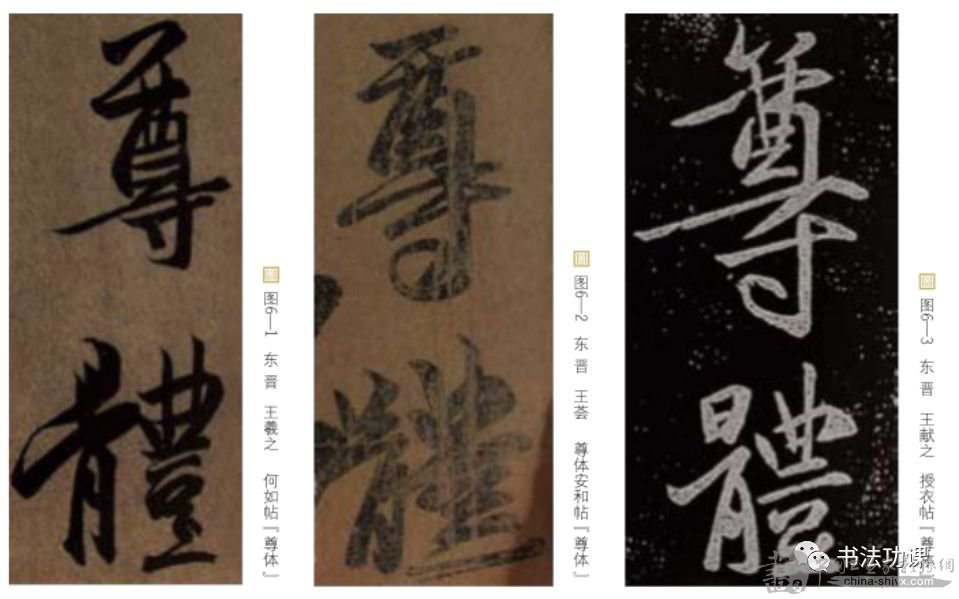 尊
體
图6—1 东晋 王羲之 何如帖『尊体』
尊
體
图6—2 东晋 王荟 尊体安和帖『尊体』
尊
體
图6—3 东晋 王献之 授衣帖『尊
书法功课
china-shjyx.com